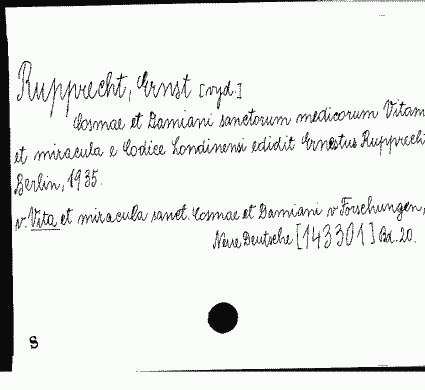 Rupprecht, Ernst [vyd.]
Cosmae et Damiani sanctorum medicorum Vitam
et miracula e Codice Londinensi edidit Ernestus Rupprecht
Berlin, 1935.
v. Vita et miracula sanct. Cosmae et Damiani v Forschungen,
Neue Deutsche [143301] Bd. 20.
8